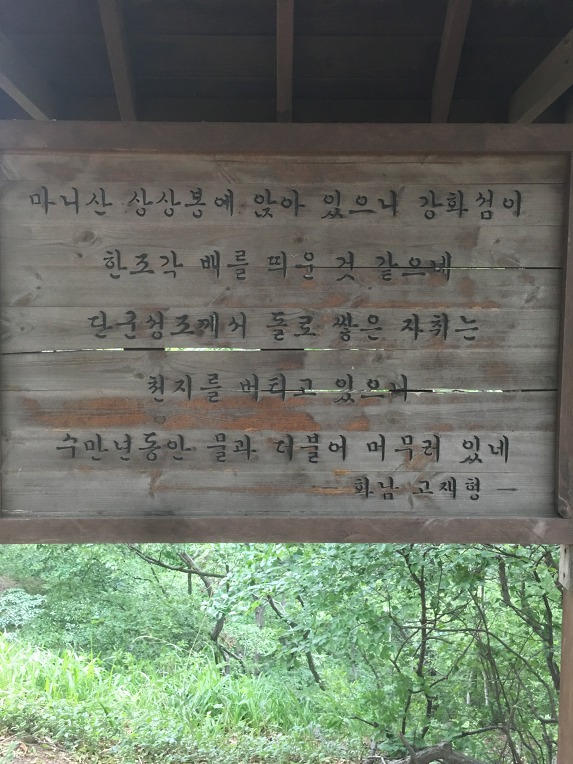 마니산 상상봉에 앉아 있으니 강화섬이
한조각 배를 띄운 것 같으네
단군성조께서 돌로 쌓은 자취는
천지를 버티고 있으니
수만년동안 물과 더불어 머무러 있네
— 화남 고재형 —